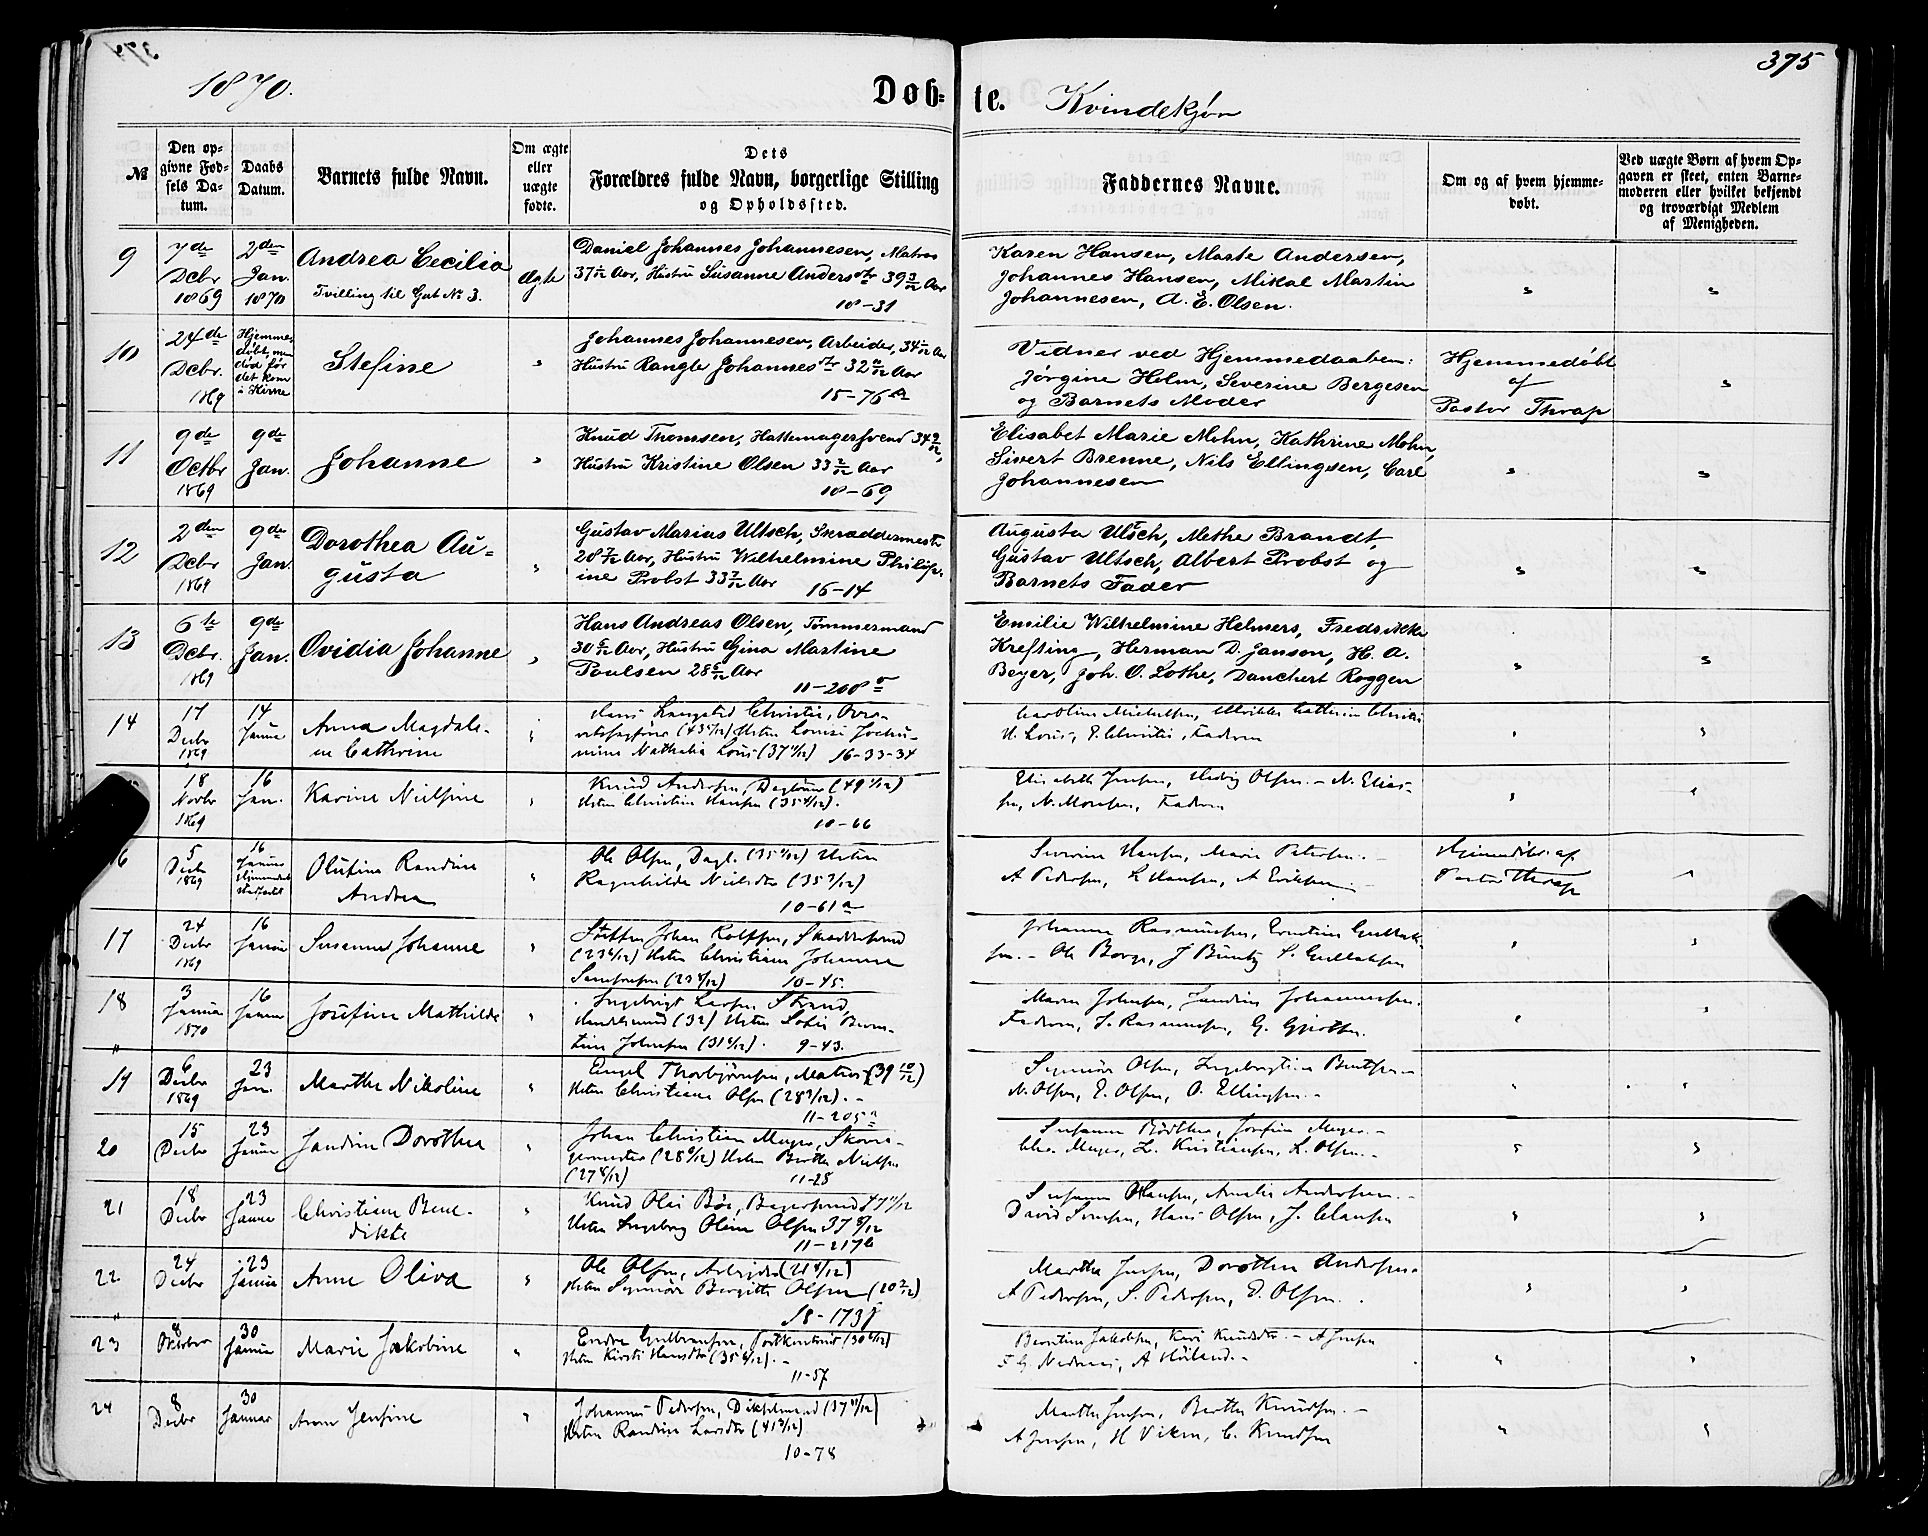 1870.
Døb-
te. Kvindekjøn
375
№
Den op-
givne Fød-
sels Da-
tum.
Daabs
Datum.
Barnets fulde Navn.
Om ægte
eller
uægte
fødte.
Dets
Forældres fulde Navn, borgerlige Stilling
og Opholdssted.
Faddernes Navne.
Om og af hvem hjemme-
døbt.
Ved uægte Børn af hvem Op-
gaven er skeet, enten Barne-
moderen eller hvilket bekjendt
og troværdigt Medlem
af Menigheden.
9
7de
Dcbr
1869
2den
Jan.
1870
Andrea Cecilia
Tvilling til Gut No 3.
Ægte
Daniel Johannes Johannesen, Matros
37 Aar, Hustru Susanne Andersdtr 39 3/12 Aar
10-31
Karen Hansen, Marte Andersen,
Johannes Hansen, Mikal Martin
Johannesen, A. E. Olsen.
10
24de
Dcbr.
1869
Hjemme-
døbt, men
død før
det kom
i Kirke
Stefine
Johannes Johannesen, Arbeider, 34 Aar
Hustru Rangle Johannesdtr 32 Aar
15-76a
Vidner ved Hjemmedaaben:
Jørgine Helm, Severine Bergesen
og Barnets Moder
Hjemmedøbt
af
Pastor Thrap
11
9de
Octbr
1869
9de
Jan.
Johanne
Knud Thomsen, Hattemagersvend 34 9/12,
Hustru Kristine Olsen 33 2/12 Aar
10-69
Elisabet Marie Mohn, Kathrine Mohn,
Sivert Brenne, Nils Ellingsen, Carl
Johannesen
12
2den
Dcbr
1869
9de
Jan.
Dorothea Au-
gusta
Gustav Marius Ultsch, Skræddermester
28 7/12 Aar, Hustru Wilhelmine Philip-
ine Probst 33 7/12 Aar
16-14
Augusta Ultsch, Methe Brandt,
Gustav Ultsch, Albert Probst og
Barnets Fader
13
6te
Dcbr.
1869
9de
Jan.
Ovidia Johanne
Hans Andreas Olsen, Tømmermand
30 6/12 Aar, Hustru Gina Martine
Poulsen 28 6/12 Aar
11-208
Emilie Wilhelmine Helmers, Fredrikke
Krefting, Herman D. Janson, H. A.
Beyer, Joh. O. Lothe, Danchert Roggen
14
17
Decbr
1869
14
Januar
Anna Magdale-
ne Cathrine
Hans Langsted Christie, Over-
Hstru Louise Jochu-
mine Nathalia Louis (37) 16-33-34
18
Novbr
1869
16
Jan.
Karine Nielsine
Knud Andersen, Dagleier (49 1/12)
Hstru Christine Hansen (35 4/12).
10-66
Elisabeth Jensen, Hedvig Olsen.- N. Elias-
sen, N. Monsen, Faderen
6
5
Decbr
1869
16
Januar
Olufine Randine
Andrea
Ole Olsen, Dagl. (35) Hstru
Ragnhilde Nielsdtr (35)
10-61a
Severine Hansen, Marie Petersen.-
A Pedersen, L Hansen, A Eriksen
Hjemmedøbt af
Pastor Thrap
17
24
Decbr
1869
16
Januar
Susanne Johanne
Steffen Johan Rolfsen, Skrædersvend
Hstru Christiane Johanne
10-45.
Johanne Rasmussen, Ernstine Gullak-
sen.- Ole Borge, J Büntz S. Gullaksen
18
3
Januar
1870
16
Januar
Josefine Mathilde
Ingebrigt Larsen Strand,
Handelsmand (32) Hstru Sofie Bern-
tine Johnsen (31). 9-43.
Maren Johnsen, Jandine Johannessen.
Faderen, S. Rasmussen, G. Gjertsen.
19
6
Decbr
1869
23
Jan.
Marthe Nikoline
Engel Thorbjørnsen, Matros (39 10/12)
Hstru Christiane Olsen (28).-
11-205a
Signora Olsen, Ingeborgtine Bentsen
N. Olsen, E. Olsen, O. Ellingsen.-
20
15
Decbr
23
Januar
Jandine Dorothea
Johan Christian Meyer, Skoma-
germester (28) Hstru Berthe Nielsen
(27 8/12)
11-28
Susanne Bødtker, Josefine Meyer.-
Chr. Meyer, L. Kristiansen, L. Olsen.-
21
18
Decbr
23
Januar
Christiane Bene-
dikte
Knud Olai Bøe, Bagersvend 47
Hstru Ingeborg Oline Olsen 37 8/12
11-217b
Susanne Olsen, Amalie Andersen.-
David Svensen, Hans Olsen, J. Clausen
22
24
Decbr
23
Januar
Anne Oliva
Ole Olsen, Arbejder (21)
Hstru Signora Bergitte Olsen (20 2/12)
18-173j
Martha Jensen, Dorothea Andersen
A Pedersen, S. Pedersen, E. Olsen.
23
8
Oktober
30
Januar
Marie Jakobine
Endre Gulbransen, (30)
Hstru Kirsti Hansdtr (35).-
11-57
Berntine Jakobsen, Kari Knudsdtr.- A Jensen
A Høiland.-
24
8
Decbr
30
Januar
Anne Jensine
Johannes Pedersen, (37)
Hstru Randine Larsdtr (41)
10-78
Marthe Jensen, Berthe Knudsen.-
A Jensen, H Viken, C. Knudsen